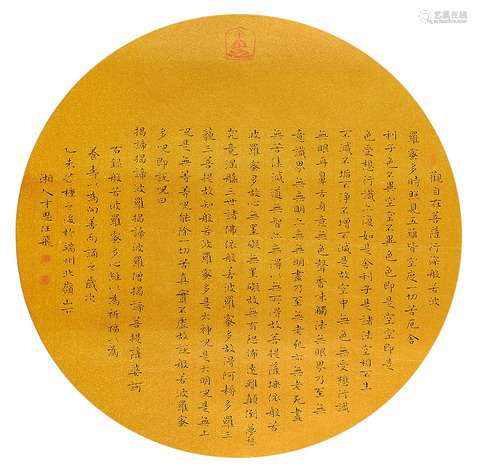 觀自在菩薩行深般若波
羅蜜多時照見五蘊皆空度一切苦厄舍
利子色不異空空不異色色即是空空即是
色受想行識亦復如是舍利子是諸法空相不生
不滅不垢不淨不增不減是故空中無色無受想行識
無眼耳鼻舌身意無色聲香味觸法無眼界乃至無
意識界無無明亦無無明盡乃至無老死亦無老死盡
無苦集滅道無智亦無得以無所得故菩提薩埵依般若
波羅蜜多故心無罣礙無罣礙故無有恐怖遠離顛倒夢想
究竟涅槃三世諸佛依般若波羅蜜多故得阿耨多羅三
藐三菩提故知般若波羅蜜多是大神咒是大明咒是無上
咒是無等等咒能除一切苦真實不虛故說般若波羅蜜
多咒即說咒曰
揭諦揭諦波羅揭諦波羅僧揭諦菩提薩婆訶
右錄般若波羅蜜多心經以為祈福以為
養壽以為向善而誦之歲次
乙未芒種之後於州北嶺山
湘人
艺狐在线